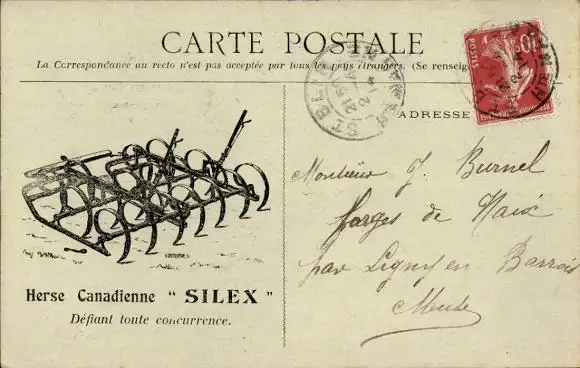 CARTE POSTALE
La Correspondance au recto n'est pas acceptée par tous les pays étrangers. (Se renseig
ADRESSE
Monsieur J. Burnel
forges de Naix
par Ligny en Barrois
Meuse
Herse Canadienne " SILEX "
Défiant toute concurrence.
10
POSTES